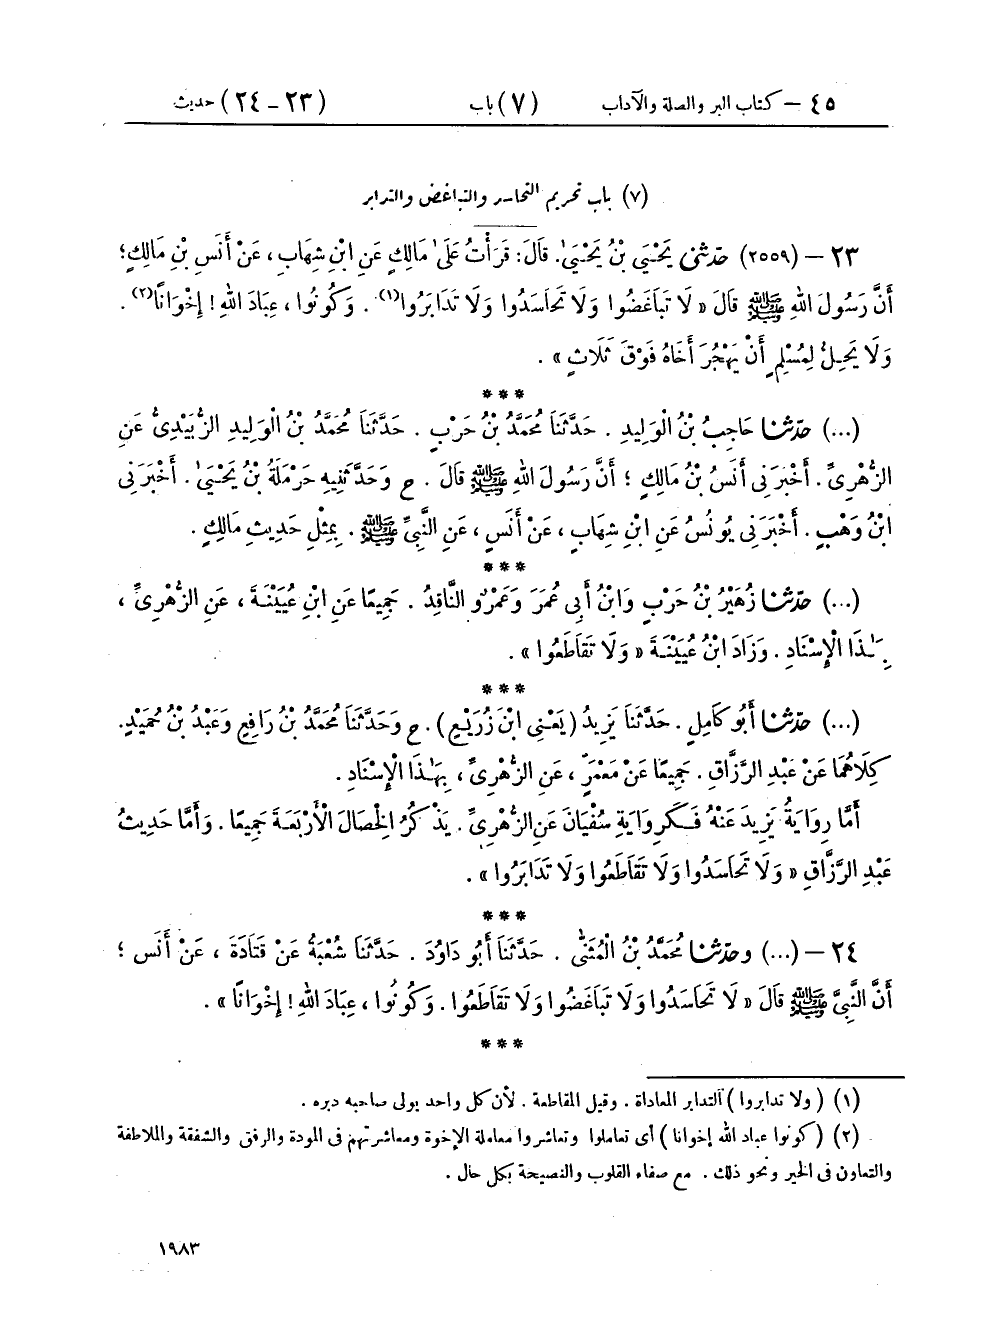 ٤٥ – كتاب البر والصلة والآداب (٧) باب (٢٣ – ٢٤) حديث
(٧) باب تحريم التحاسد والتباغض والتدابر
٢٣ – (٢٥٥٩) حَدَّثَنِي يَحْيَىٰ بْنُ يَحْيَىٰ. قَالَ: قَرَأْتُ عَلَىٰ مَالِكٍ عَنِ ابْنِ شِهَابٍ، عَنْ أَنَسِ بْنِ مَالِكٍ؛
أَنَّ رَسُولَ اللهِ ﷺ قَالَ « لَا تَبَاغَضُوا وَلَا تَحَاسَدُوا وَلَا تَدَابَرُوا(١). وَكُونُوا، عِبَادَ اللهِ! إِخْوَانًا(٢).
وَلَا يَحِلُّ لِمُسْلِمٍ أَنْ يَهْجُرَ أَخَاهُ فَوْقَ ثَلَاثٍ ».
***
(...) حَدَّثَنَا حَاجِبُ بْنُ الْوَلِيدِ. حَدَّثَنَا مُحَمَّدُ بْنُ حَرْبٍ. حَدَّثَنَا مُحَمَّدُ بْنُ الْوَلِيدِ الزُّبَيْدِىُّ عَنِ
الزُّهْرِىِّ. أَخْبَرَنِى أَنَسُ بْنُ مَالِكٍ؛ أَنَّ رَسُولَ اللهِ ﷺ قَالَ. ح وَحَدَّثَنِيهِ حَرْمَلَةُ بْنُ يَحْيَىٰ. أَخْبَرَنِى
ابْنُ وَهْبٍ. أَخْبَرَنِى يُونُسُ عَنِ ابْنِ شِهَابٍ، عَنْ أَنَسٍ، عَنِ النَّبِىِّ ﷺ. بِمِثْلِ حَدِيثِ مَالِكٍ.
***
(...) حَدَّثَنَا زُهَيْرُ بْنُ حَرْبٍ وَابْنُ أَبِى عُمَرَ وَعَمْرٌو النَّاقِدُ. جَمِيعًا عَنِ ابْنِ عُيَيْنَةَ، عَنِ الزُّهْرِىِّ،
بِهَـٰذَا الْإِسْنَادِ. وَزَادَ ابْنُ عُيَيْنَةَ « وَلَا تَقَاطَعُوا ».
***
(...) حَدَّثَنَا أَبُو كَامِلٍ. حَدَّثَنَا يَزِيدُ (يَعْنِى ابْنَ زُرَيْعٍ). ح وَحَدَّثَنَا مُحَمَّدُ بْنُ رَافِعٍ وَعَبْدُ بْنُ حُمَيْدٍ.
كِلَاهُمَا عَنْ عَبْدِ الرَّزَّاقِ. جَمِيعًا عَنْ مَعْمَرٍ، عَنِ الزُّهْرِىِّ، بِهَـٰذَا الْإِسْنَادِ.
أَمَّا رِوَايَةُ يَزِيدَ عَنْهُ فَكَرِوَايَةِ سُفْيَانَ عَنِ الزُّهْرِىِّ. يَذْكُرُ الْخِصَالَ الْأَرْبَعَةَ جَمِيعًا. وَأَمَّا حَدِيثُ
عَبْدِ الرَّزَّاقِ « وَلَا تَحَاسَدُوا وَلَا تَقَاطَعُوا وَلَا تَدَابَرُوا ».
***
٢٤ – (...) وحَدَّثَنَا مُحَمَّدُ بْنُ الْمُثَنَّىٰ. حَدَّثَنَا أَبُو دَاوُدَ. حَدَّثَنَا شُعْبَةُ عَنْ قَتَادَةَ، عَنْ أَنَسٍ؛
أَنَّ النَّبِىَّ ﷺ قَالَ « لَا تَحَاسَدُوا وَلَا تَبَاغَضُوا وَلَا تَقَاطَعُوا. وَكُونُوا، عِبَادَ اللهِ! إِخْوَانًا ».
***
(١) (ولا تدابروا) التدابر المعاداة. وقيل المقاطعة. لأن كل واحد يولى صاحبه دبره.
(٢) (كونوا عباد الله إخوانا) أى تعاملوا وتعاشروا معاملة الإخوة ومعاشرتهم فى المودة والرفق والشفقة والملاطفة
والتعاون فى الخير ونحو ذلك. مع صفاء القلوب والنصيحة بكل حال.
١٩٨٣